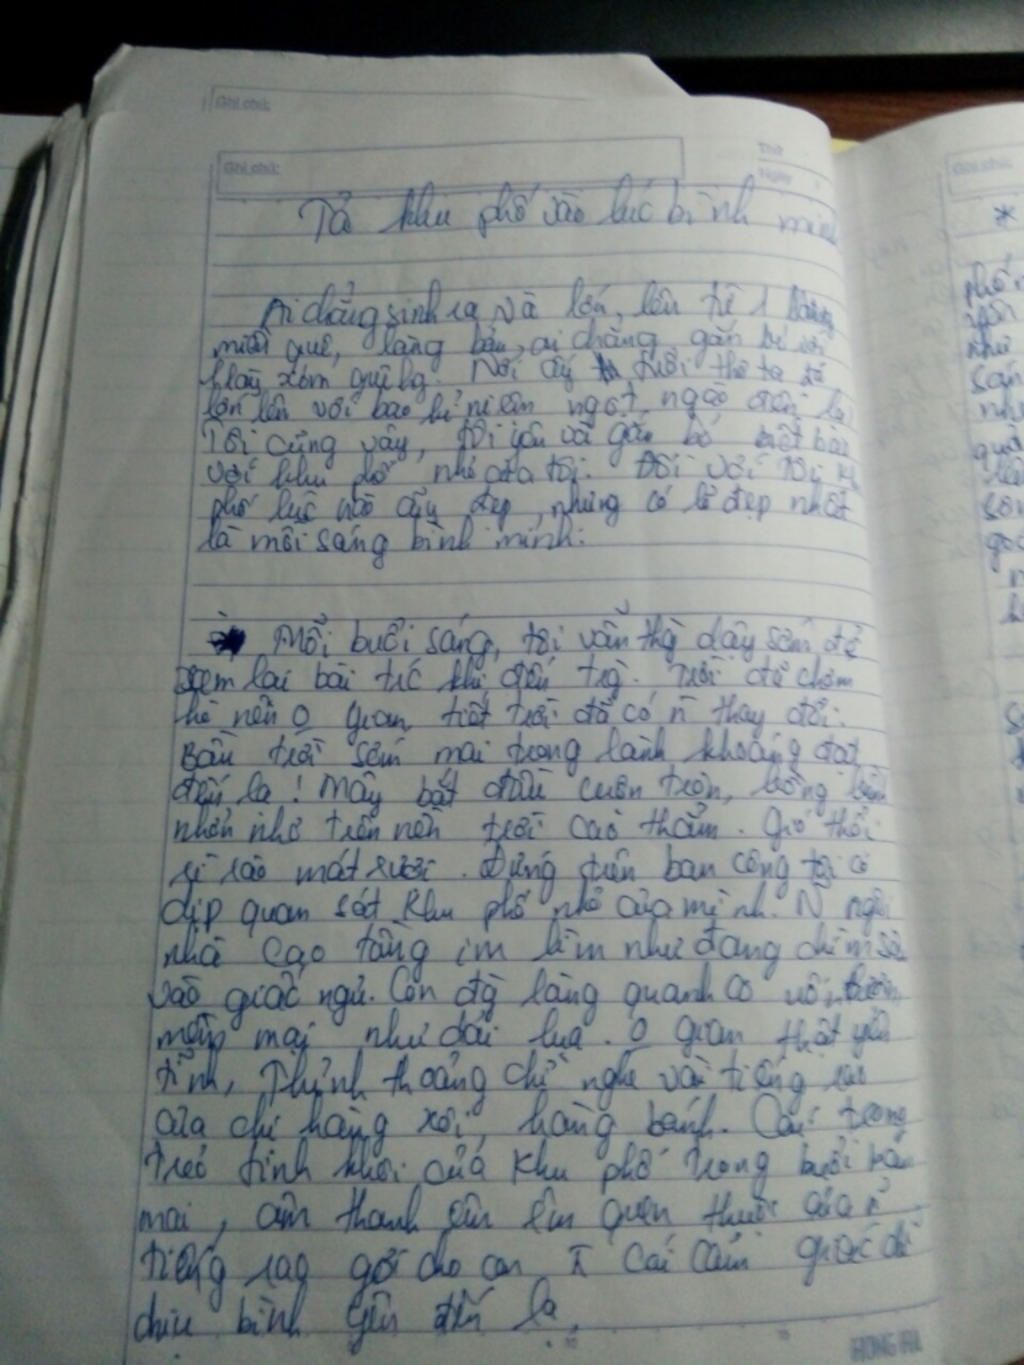 Ghi chú:
Ghi chú:
Thứ
Ngày
Tả khu phố vào lúc bình minh
Ai chẳng sinh ra và lớn lên từ 1
miền quê, làng bản, ai chẳng gắn bó với
xóm Nơi ấy tuổi thơ ta đã
lớn lên với bao kỉ niệm ngọt ngào đến lạ
Tôi cũng vậy, tôi yêu và gắn bó biết bao
với khu phố nhỏ của tôi. Đối với tôi, khu
phố lúc nào cũng đẹp, nhưng có lẽ đẹp nhất
là mỗi sáng bình minh.
Mỗi buổi sáng, tôi vẫn thg dậy sớm để
xem lại bài trc khi đến trg. Trời đã chớm
hè nên o gian, tiết trời đã có n thay đổi.
Bầu trời sớm mai trong lành khoáng đạt
đến lạ! Mây bắt đầu cuộn tròn, bồng bềnh
nhởn nhơ trên nền trời cao thẳm. Gió thổi
rì rào mát rượi. Đứng trên ban công tôi có
dịp quan sát khu phố nhỏ của mình. N ngôi
nhà cao tầng im lìm như đang chìm sâu
vào giấc ngủ. Con đg làng quanh co
mềm mại như dải lụa. O gian thật yên
tĩnh, Thỉnh thoảng chỉ nghe vài tiếng rao
của chị hàng xôi, hàng bánh. Cái trong
trẻo tinh khôi của khu phố trong buổi ban
mai, âm thanh êm êm quen thuộc của n
tiếng rao gợi cho con ta cái cảm giác dễ
chịu bình yên đến lạ.
HONG HA